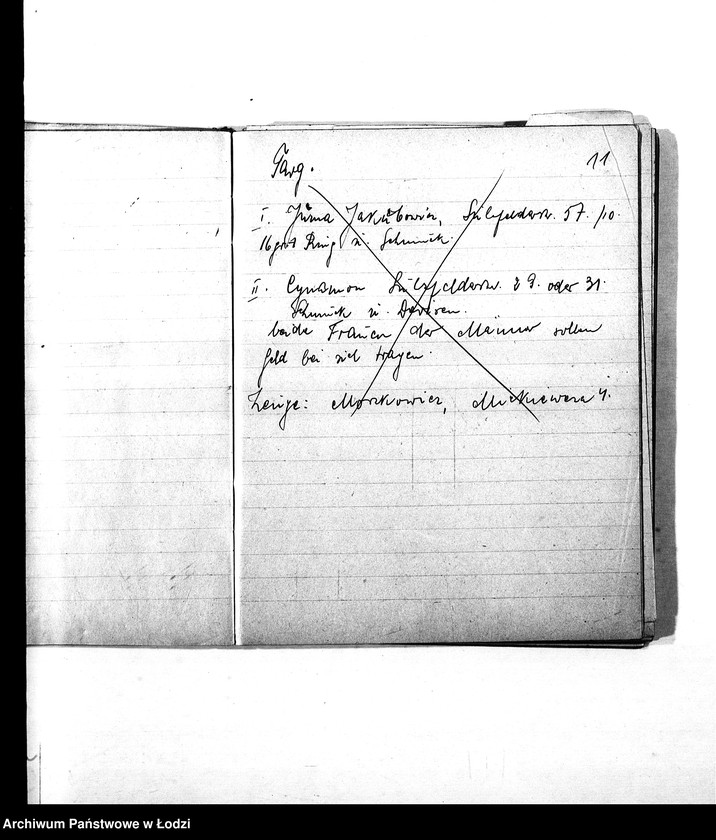 Targ.
11
I. Juma Jakubowicz, Sulzfelderstr. 57. /10.
Ring u. Schmuck.
II. Cynamon Sulzfelderstr. 29. oder 31.
Schmuck u. Devisen.
beide Frauen der Männer sollen
Geld bei sich tragen.
Zeuge: Moszkowicz, 4.
Archiwum Państwowe w Łodzi